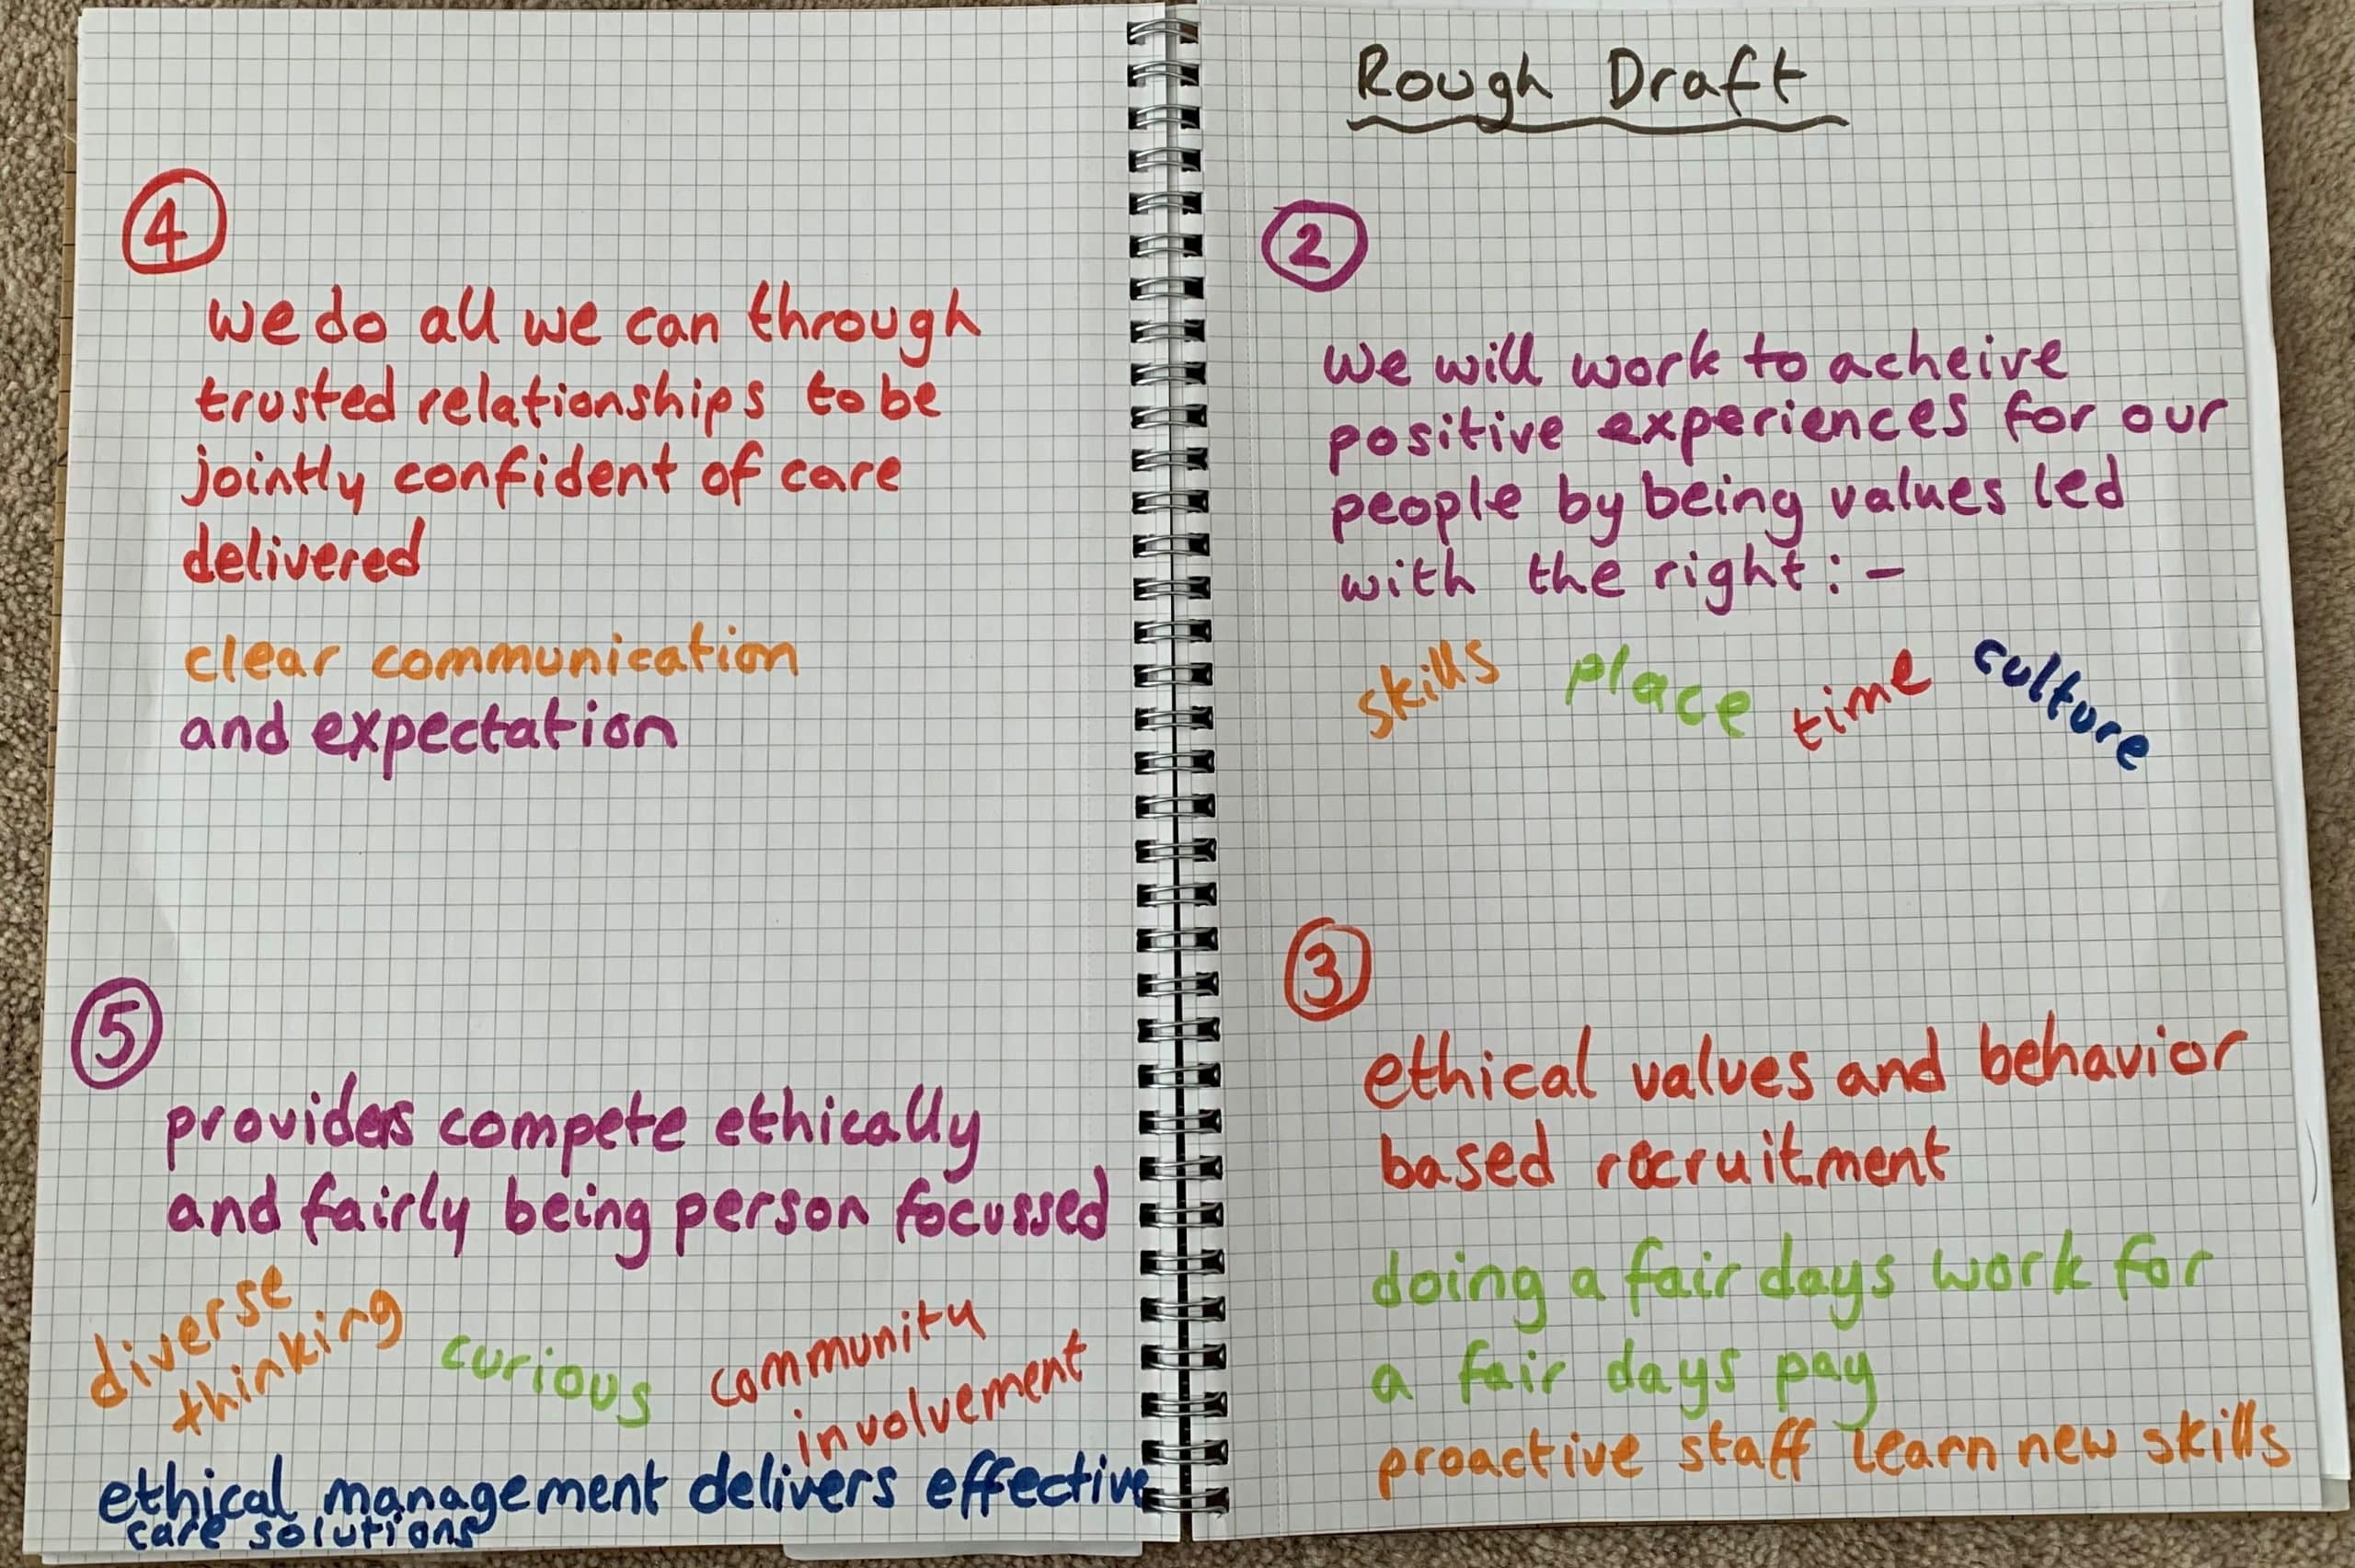 4
we do all we can through
trusted relationships to be
jointly confident of care
delivered
clear communication
and expectation
5
providers compete ethically
and fairly being person focussed
diverse
thinking
curious
community
involvement
ethical management delivers effective
care solutions
Rough Draft
2
we will work to acheive
positive experiences for our
people by being values led
with the right:-
skills place time culture
3
ethical values and behavior
based recruitment
doing a fair days work for
a fair days pay
proactive staff learn new skills